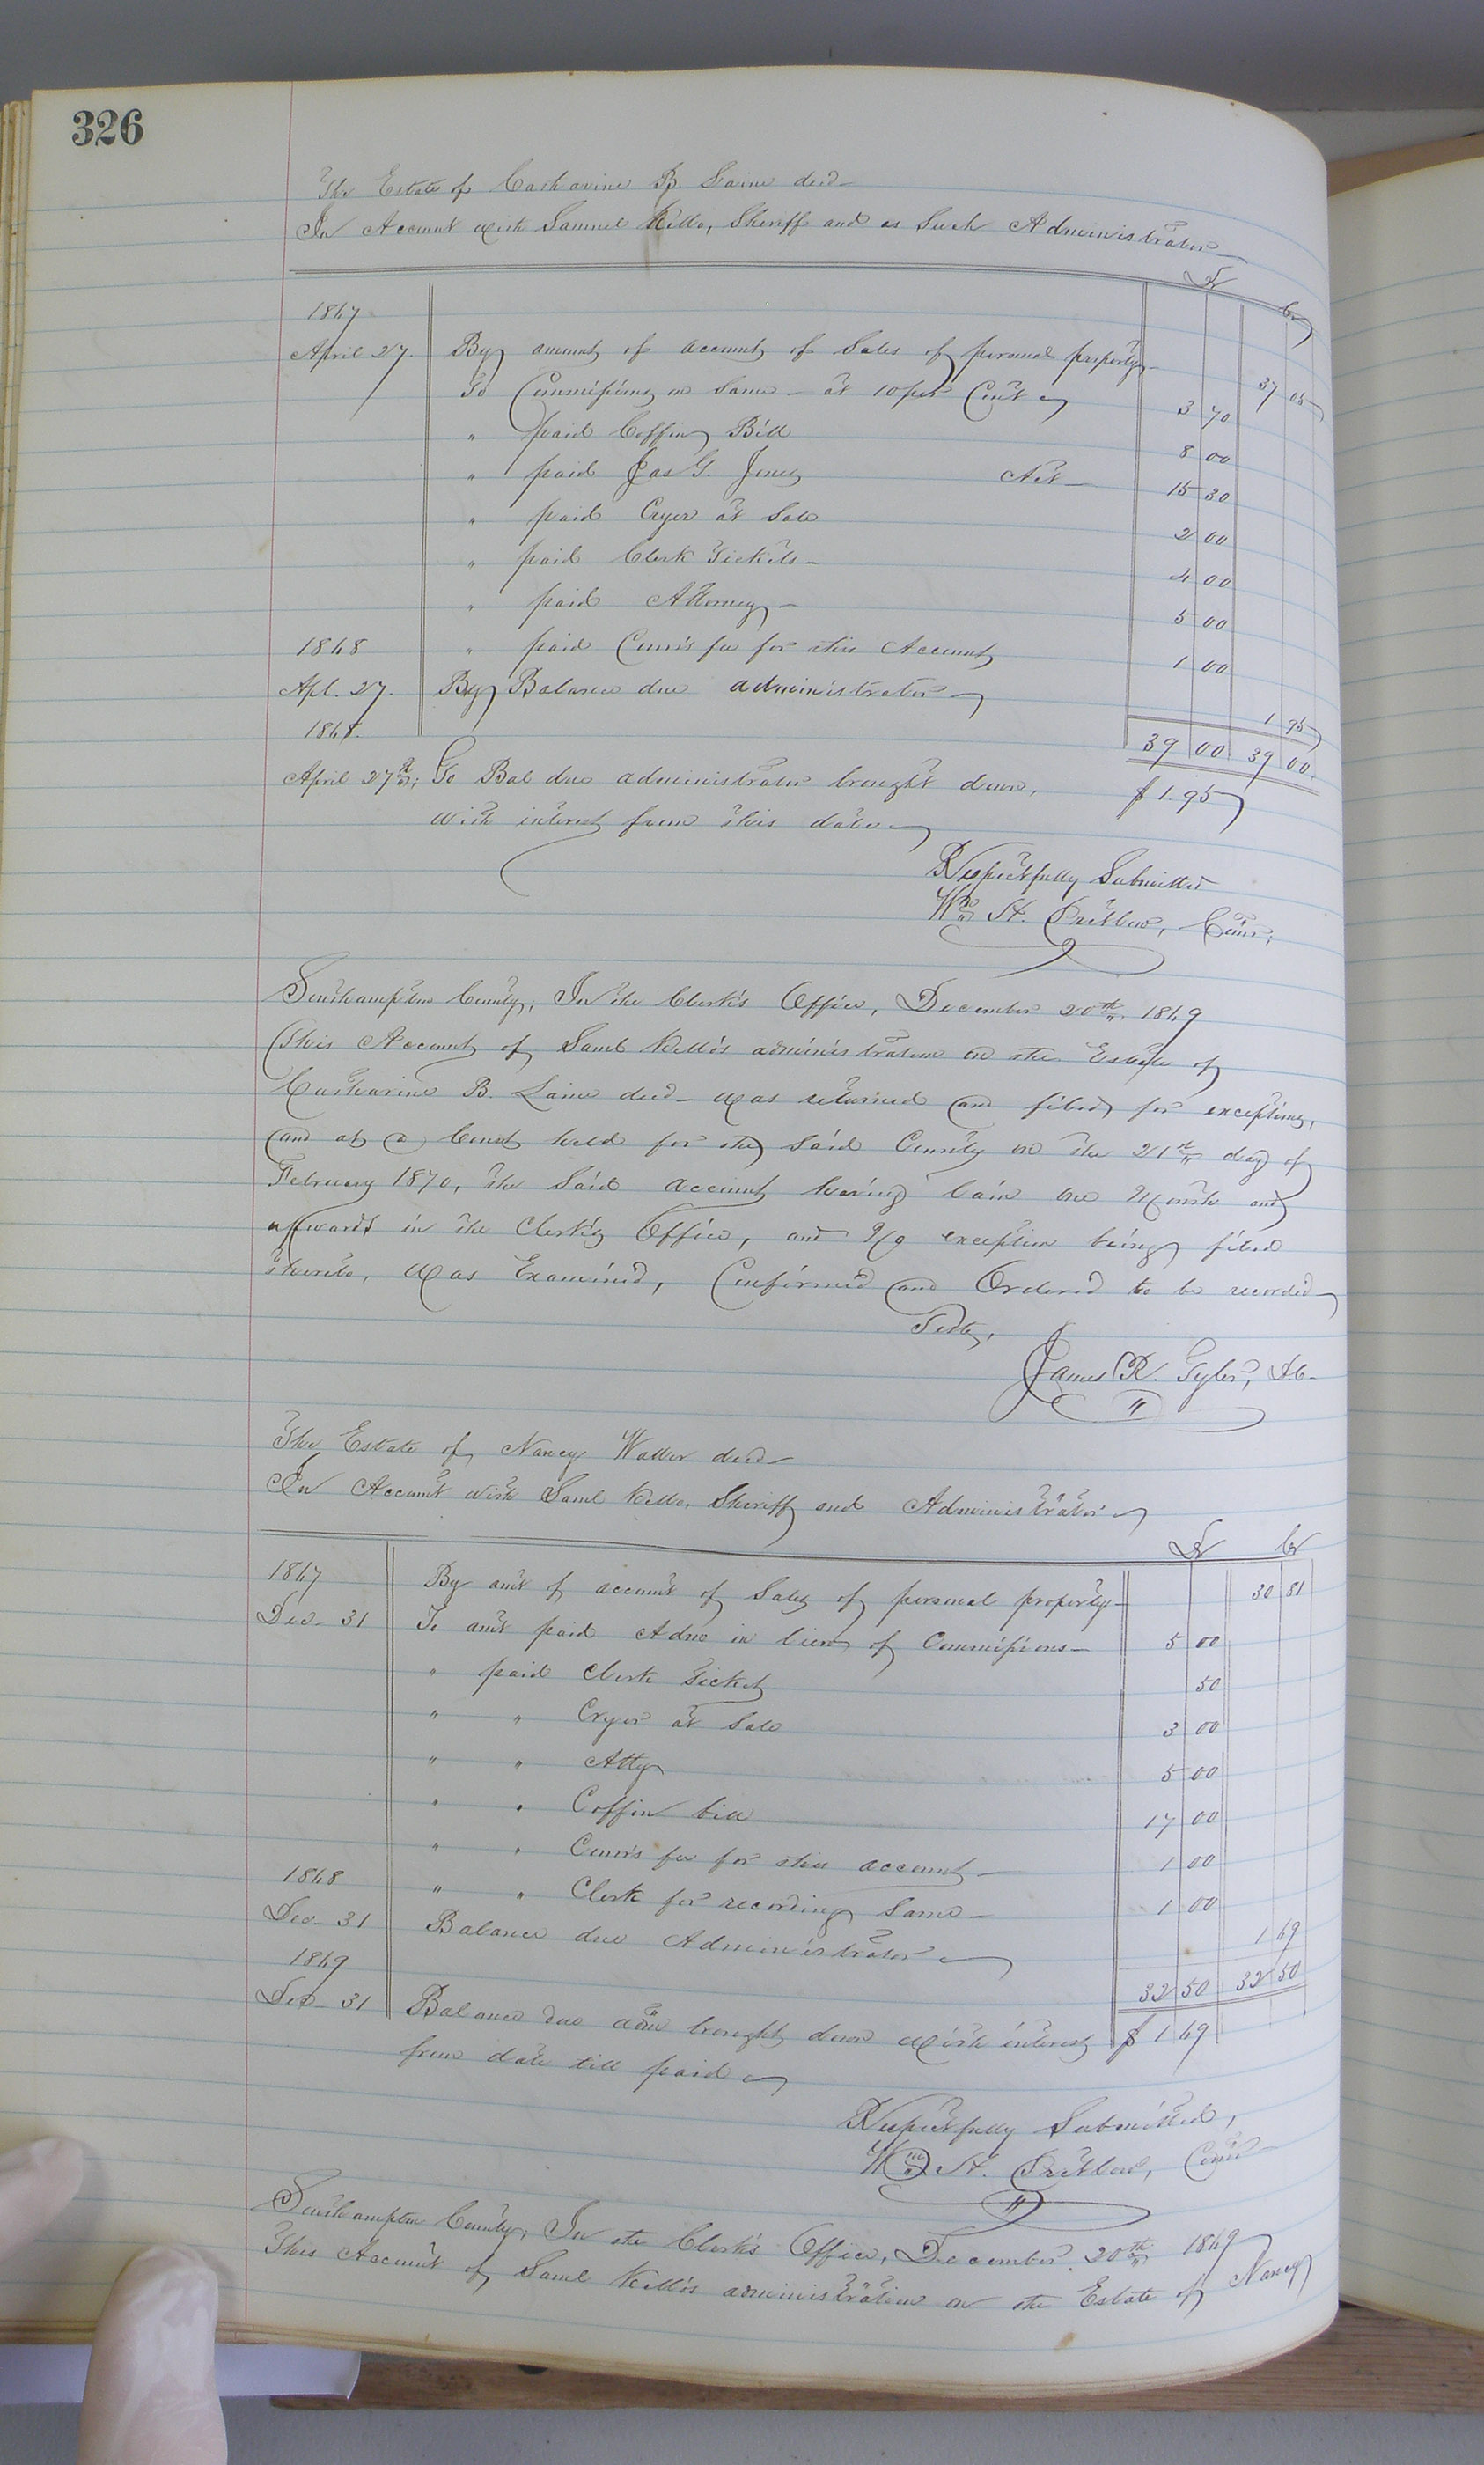 326
The Estate of Catharine B. Laine decd
In Account with Samuel Kello, Sheriff and as Such Administrator
Dr Cr
1867
April 27. By amount of account of Sales of personal property 37 05
To Commissions on Same at 10 per Cent 3 70
" paid Coffin Bill 8 00
" paid Jas G. Jones Act 15 30
" paid Cryer at Sale 2 00
" paid Clerk Tickets 4 00
" paid Attorney 5 00
1868 " paid Comr's fee for this Account 1 00
Apl. 27. By Balance due administrator 1 95
1868. 39 00 39 00
April 27th; To Bal due administrator brought down, $1.95
with interest from this date
Respectfully Submitted
Wm H. Pretlow, Comr;
Southampton County; In the Clerk's Office, December 20th 1869
This Account of Saml Kello's administration on the Estate of
Catharine B. Laine decd was returned and filed for exceptions,
and at a Court held for the Said County on the 21st day of
February 1870, the Said account having lain one Month and
upwards in the Clerk's Office, and No exception being filed
thereto, was Examined, Confirmed and Ordered to be recorded
Teste,
James R. Tyler, DC
The Estate of Nancy Waller decd
In Account with Saml Kello, Sheriff and Administrator
Dr Cr
1867 By amt of account of Sales of personal property 30 81
Dec 31 To amt paid Admr in lieu of Commissions 5 00
" paid Clerk Ticket 50
" " Cryer at Sale 3 00
" " Atty 5 00
" " Coffin bill 17 00
" " Comr's fee for this account 1 00
1868 " " Clerk for recording Same 1 00
Dec 31 Balance due Administrator 1 69
1869 32 50 32 50
Dec 31 Balance due admr brought down with interest $1 69
from date till paid
Respectfully Submitted,
Wm H. Pretlow, Comr
Southampton County; In the Clerk's Office, December 20th 1869
This Account of Saml Kello's administration on the Estate of Nancy